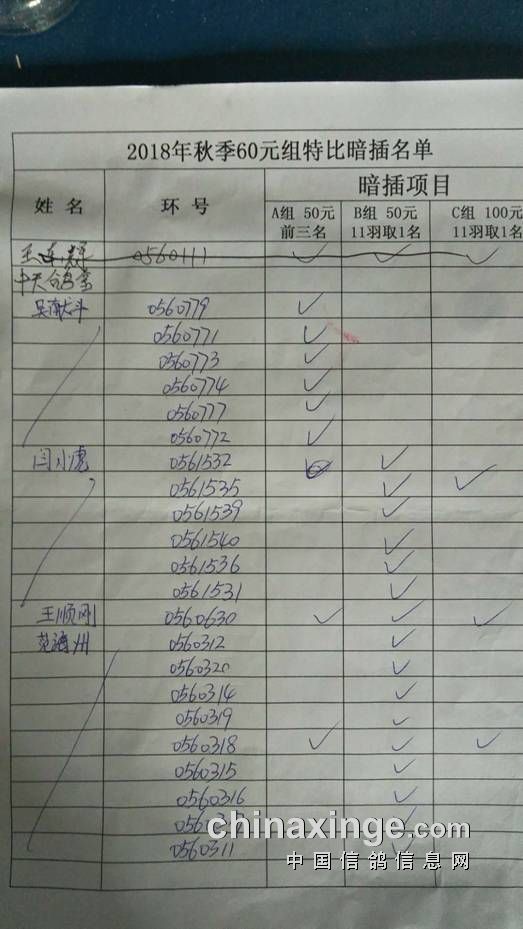 2018年秋季60元组特比暗插名单
姓 名 环 号 暗插项目
A组 50元 B组 50元 C组 100元
前三名 11羽取1名 11羽取1名
0560111 ✓ ✓ ✓
0560779 ✓
0560771 ✓
0560773 ✓
0560774 ✓
0560777 ✓
0560772 ✓
闫小虎 0561532 ✓
0561535 ✓ ✓
0561539 ✓
0561540 ✓
0561536 ✓
0561531 ✓
王顺刚 0560630 ✓ ✓ ✓
范海州 0560312 ✓
0560320 ✓
0560314 ✓
0560319 ✓
0560318 ✓ ✓ ✓
0560315 ✓
0560316 ✓
✓
0560311 ✓
chinaxinge.com
中国信鸽信息网